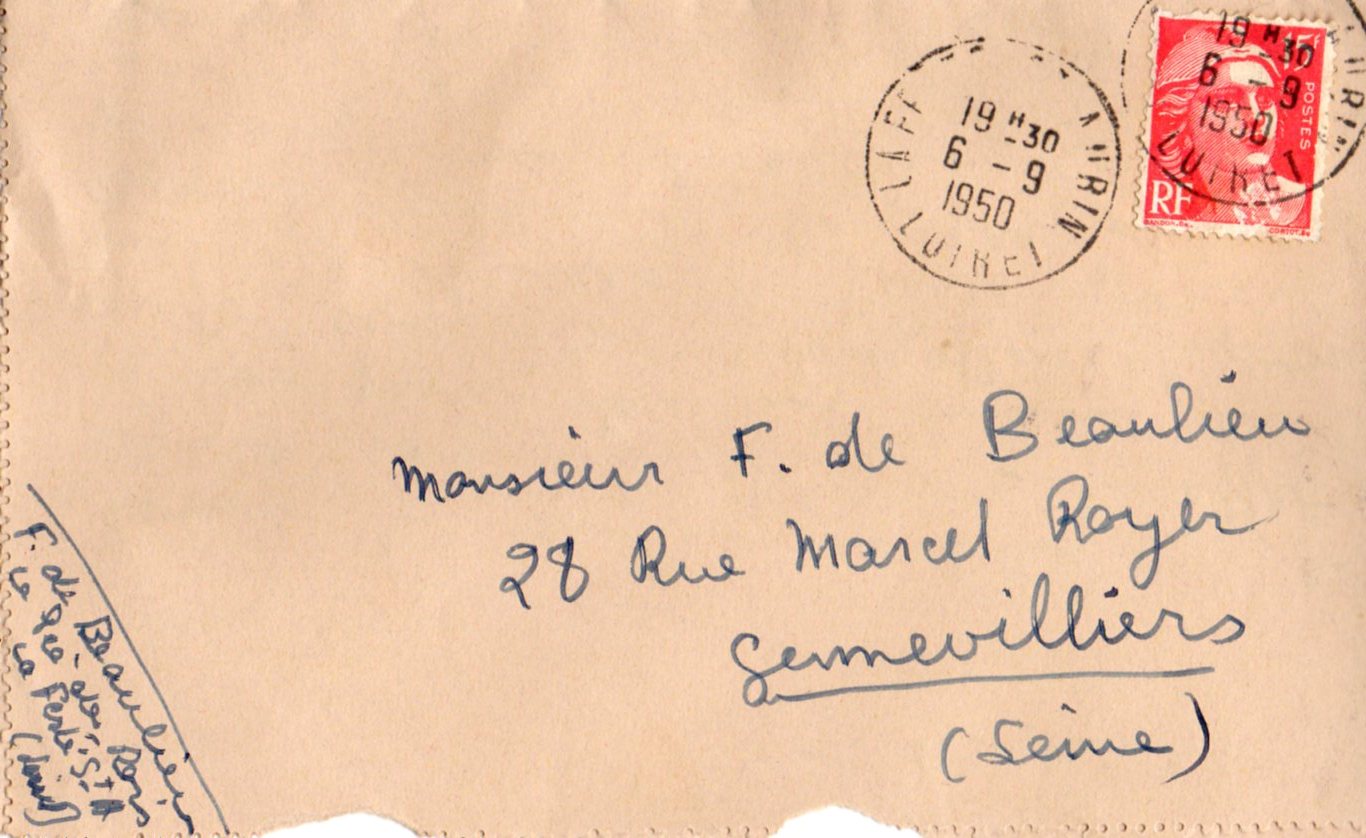 19 H 30
6 - 9
1950
LOIRET
15F
POSTES
RF
19 H 30
6 - 9
1950
LOIRET
Monsieur F. de Beaulieu
28 Rue Marcel Royer
Gennevilliers
(Seine)
F. de Beaulieu
le Gué-des-Bois
La Ferté-St A
(Loiret)